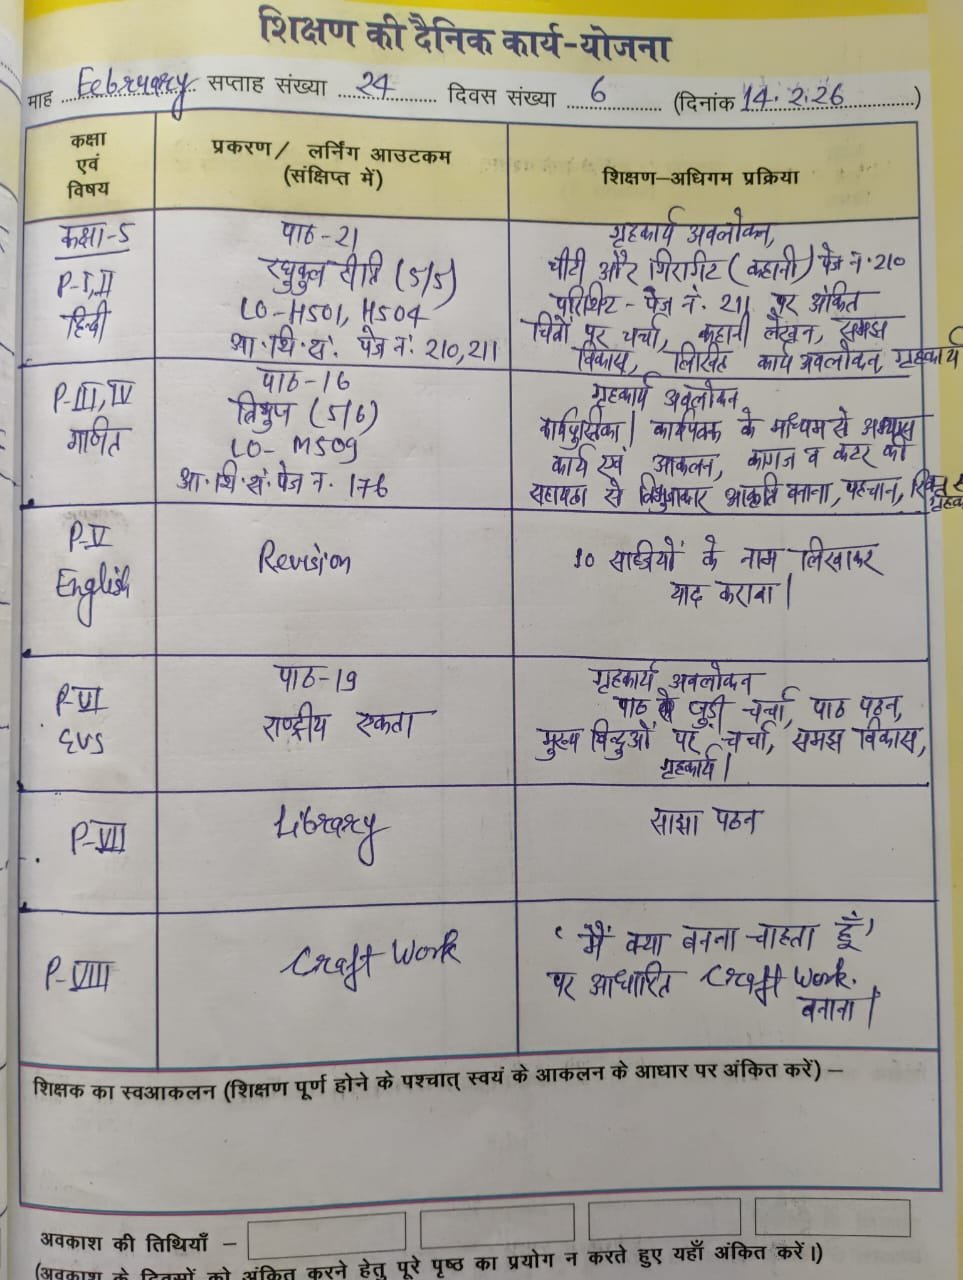 शिक्षण की दैनिक कार्य-योजना
माह February सप्ताह संख्या 24 दिवस संख्या 6 (दिनांक 14.2.26)
कक्षा
एवं
विषय
प्रकरण / लर्निंग आउटकम
(संक्षिप्त में)
शिक्षण–अधिगम प्रक्रिया
कक्षा-5
P-I,II
हिन्दी
पाठ-21
रघुकुल रीति (5/5)
LO-H501, H504
आ.शि.सं. पेज नं. 210,211
गृहकार्य अवलोकन,
चींटी और गिरगिट (कहानी) पेज नं.210
परिशिष्ट - पेज नं. 211 पर अंकित
चित्रों पर चर्चा, कहानी लेखन, समझ
विकास, लिखित कार्य अवलोकन, गृहकार्य
P-III,IV
गणित
पाठ-16
त्रिभुज (5/6)
LO-M509
आ.शि.सं. पेज नं. 176
गृहकार्य अवलोकन
कार्यपुस्तिका/ कार्यपत्रक के माध्यम से अभ्यास
कार्य एवं आकलन, कागज व कटर की
सहायता से त्रिभुजाकार आकृति बनाना, पहचान,
P-V
English
Revision
10 सब्जियों के नाम लिखाकर
याद कराना।
P-VI
EVS
पाठ-19
राष्ट्रीय एकता
गृहकार्य अवलोकन
पाठ से जुड़ी चर्चा, पाठ पठन,
मुख्य बिन्दुओं पर चर्चा, समझ विकास,
गृहकार्य।
P-VII
Library
साझा पठन
P-VIII
Craft Work
'मैं क्या बनना चाहता हूँ'
पर आधारित Craft Work.
बनाना।
शिक्षक का स्वआकलन (शिक्षण पूर्ण होने के पश्चात् स्वयं के आकलन के आधार पर अंकित करें) –
अवकाश की तिथियाँ –
(अवकाश के दिवसों को अंकित करने हेतु पूरे पृष्ठ का प्रयोग न करते हुए यहाँ अंकित करें।)